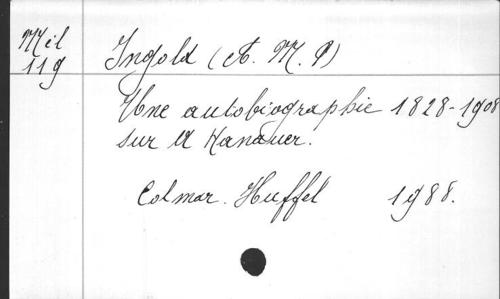 Mél
119
Ingold (A. M. P)
Une autobiographie 1828-1908
sur A Hanauer.
Colmar. Huffel 1988.